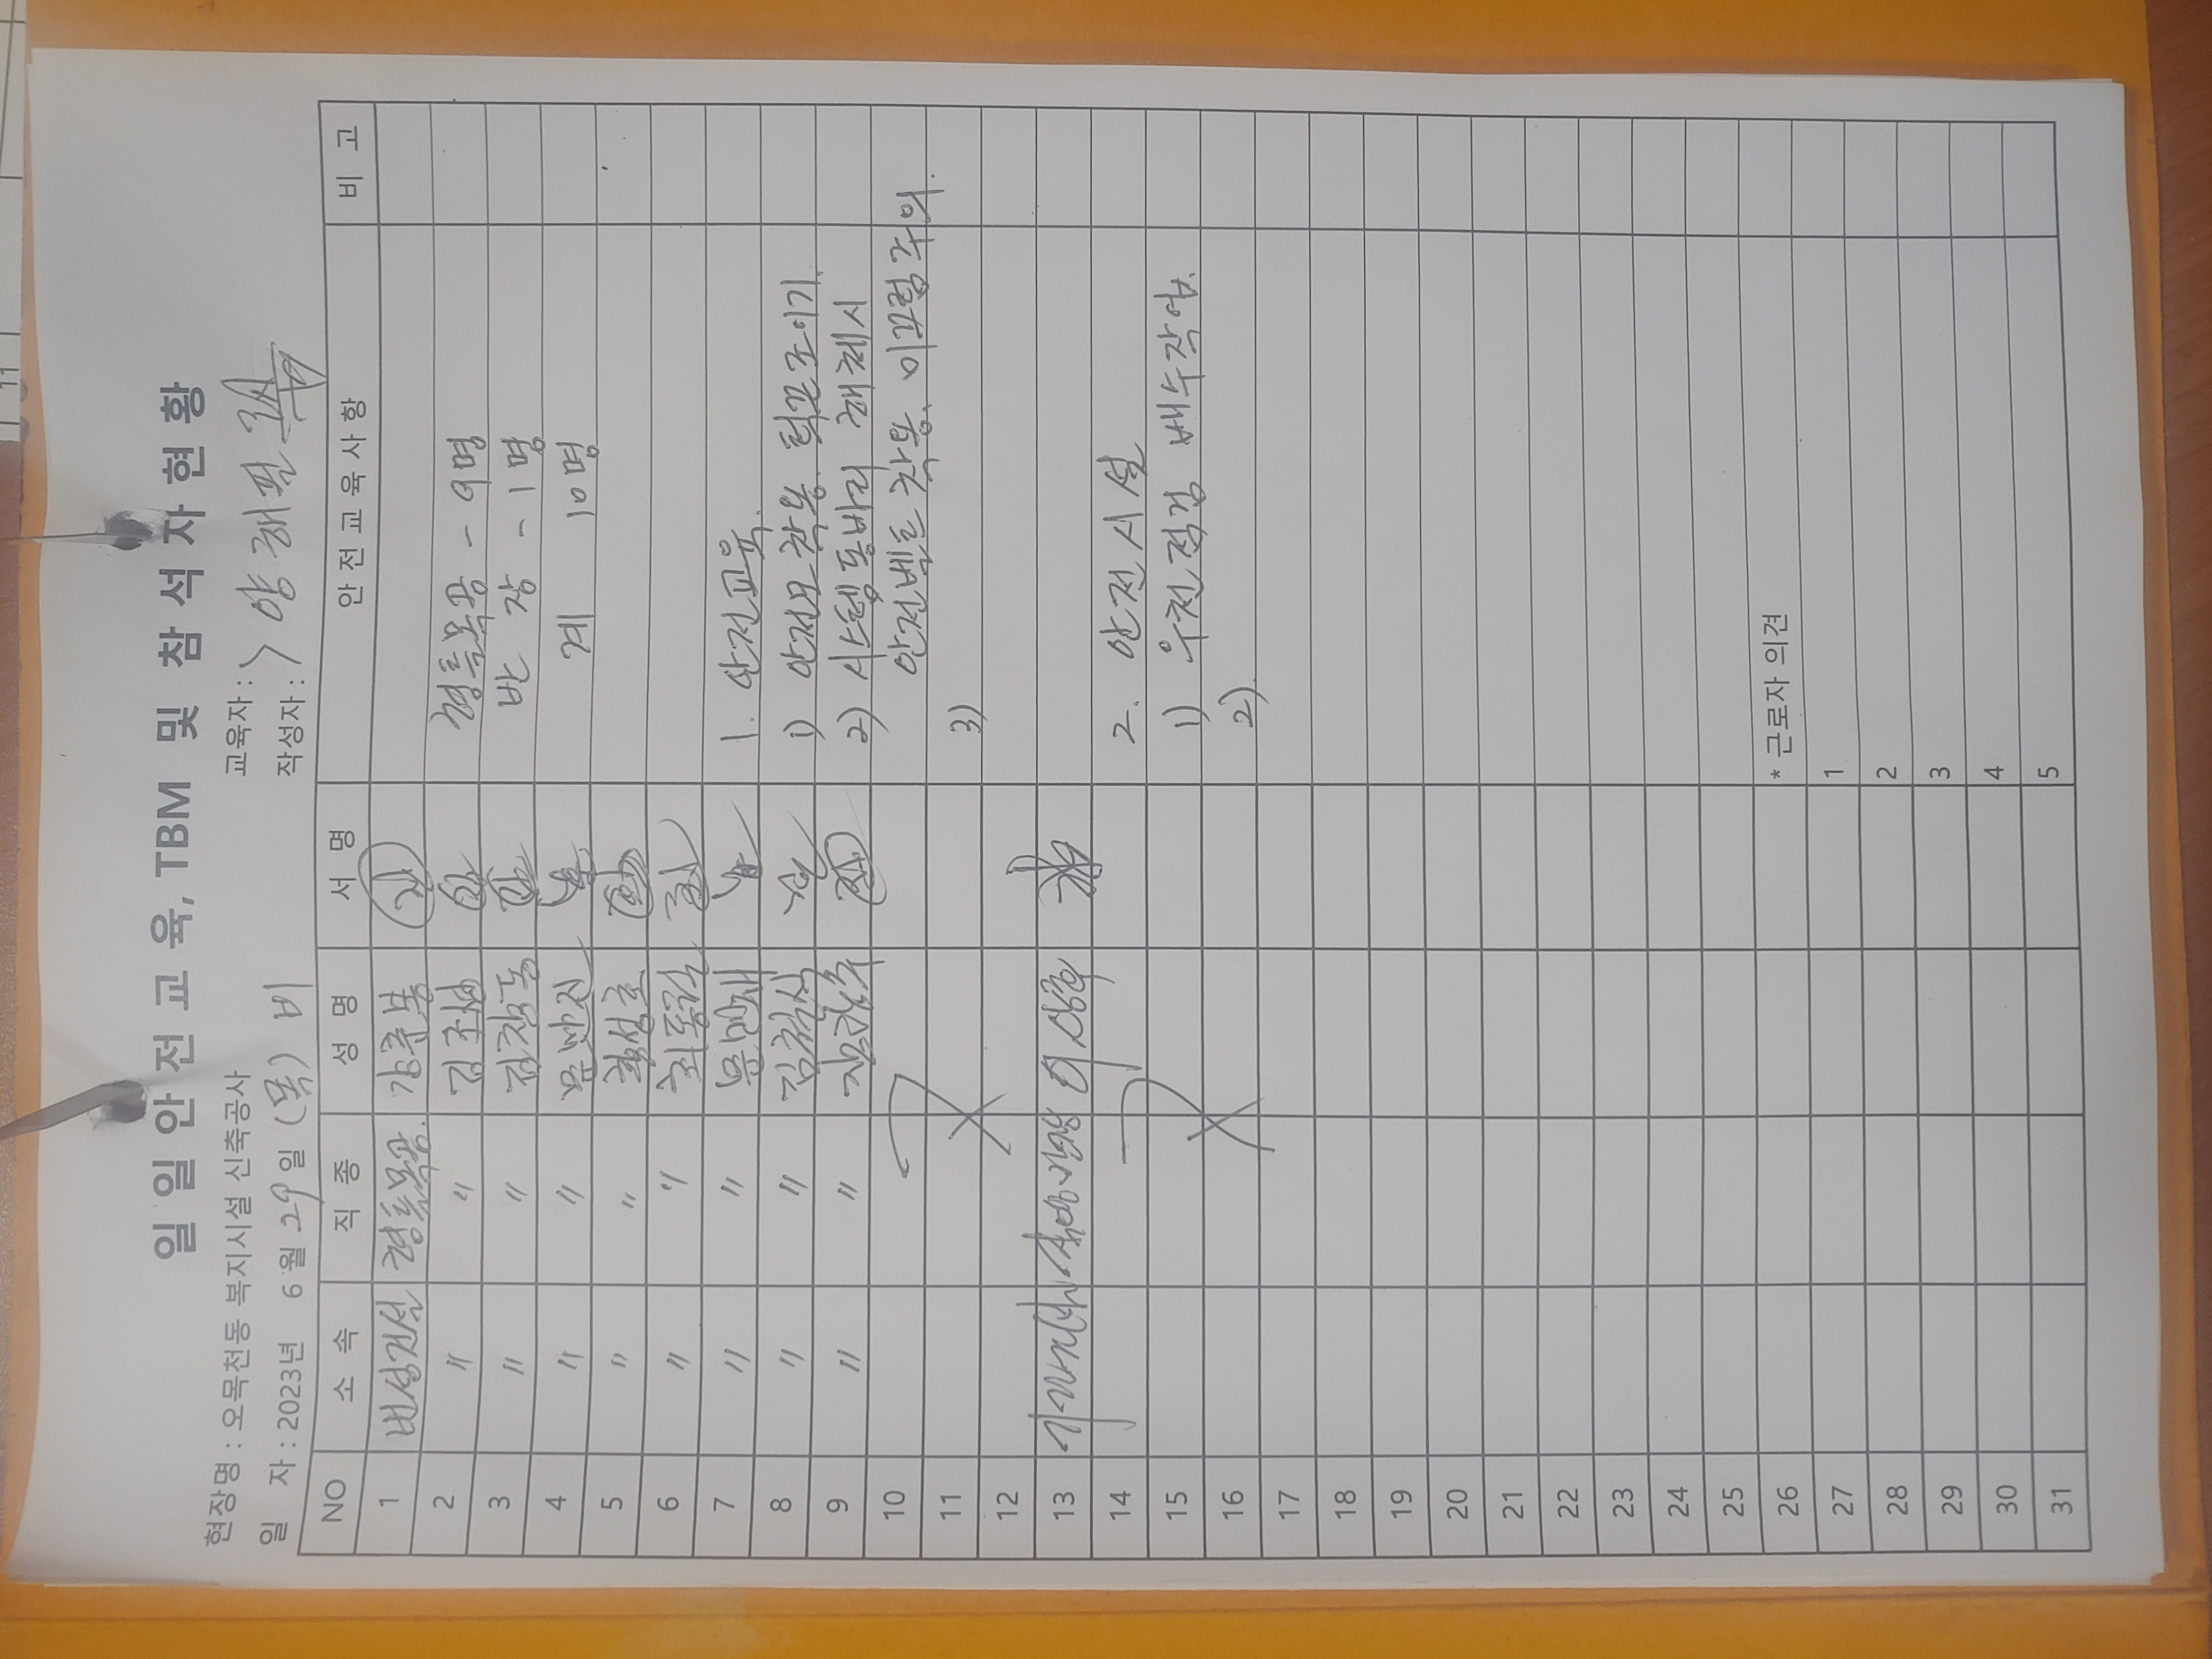 11
일일안전교육, TBM 및 참석자현황
현장명 : 오목천동 복지시설 신축공사
교육자 :
일 자 : 2023년 6월 29일 (목) 비
작성자 : 양해필
NO 소속 직종 성명 서명 안전교육사항 비고
1 번성건설 형틀목공. 강준봉
2 〃 〃 형틀목공 - 9명
3 〃 〃 김창동 반 장 - 1명
4 〃 〃 계 10명
5 〃 〃 황성호
6 〃 〃
7 〃 〃 문민재 1. 안전교육.
8 〃 〃 김철식 1) 안전모 착용. 턱끈조이기.
9 〃 〃 2) 시스템동바리 해체시
10 안전벨트 착용, 미끄럼주의.
11 3)
12
13 이상훈
14 2. 안전시설
15 1) 우천점검 배수작업.
16 2).
17
18
19
20
21
22
23
24
25
26 * 근로자 의견
27 1
28 2
29 3
30 4
31 5